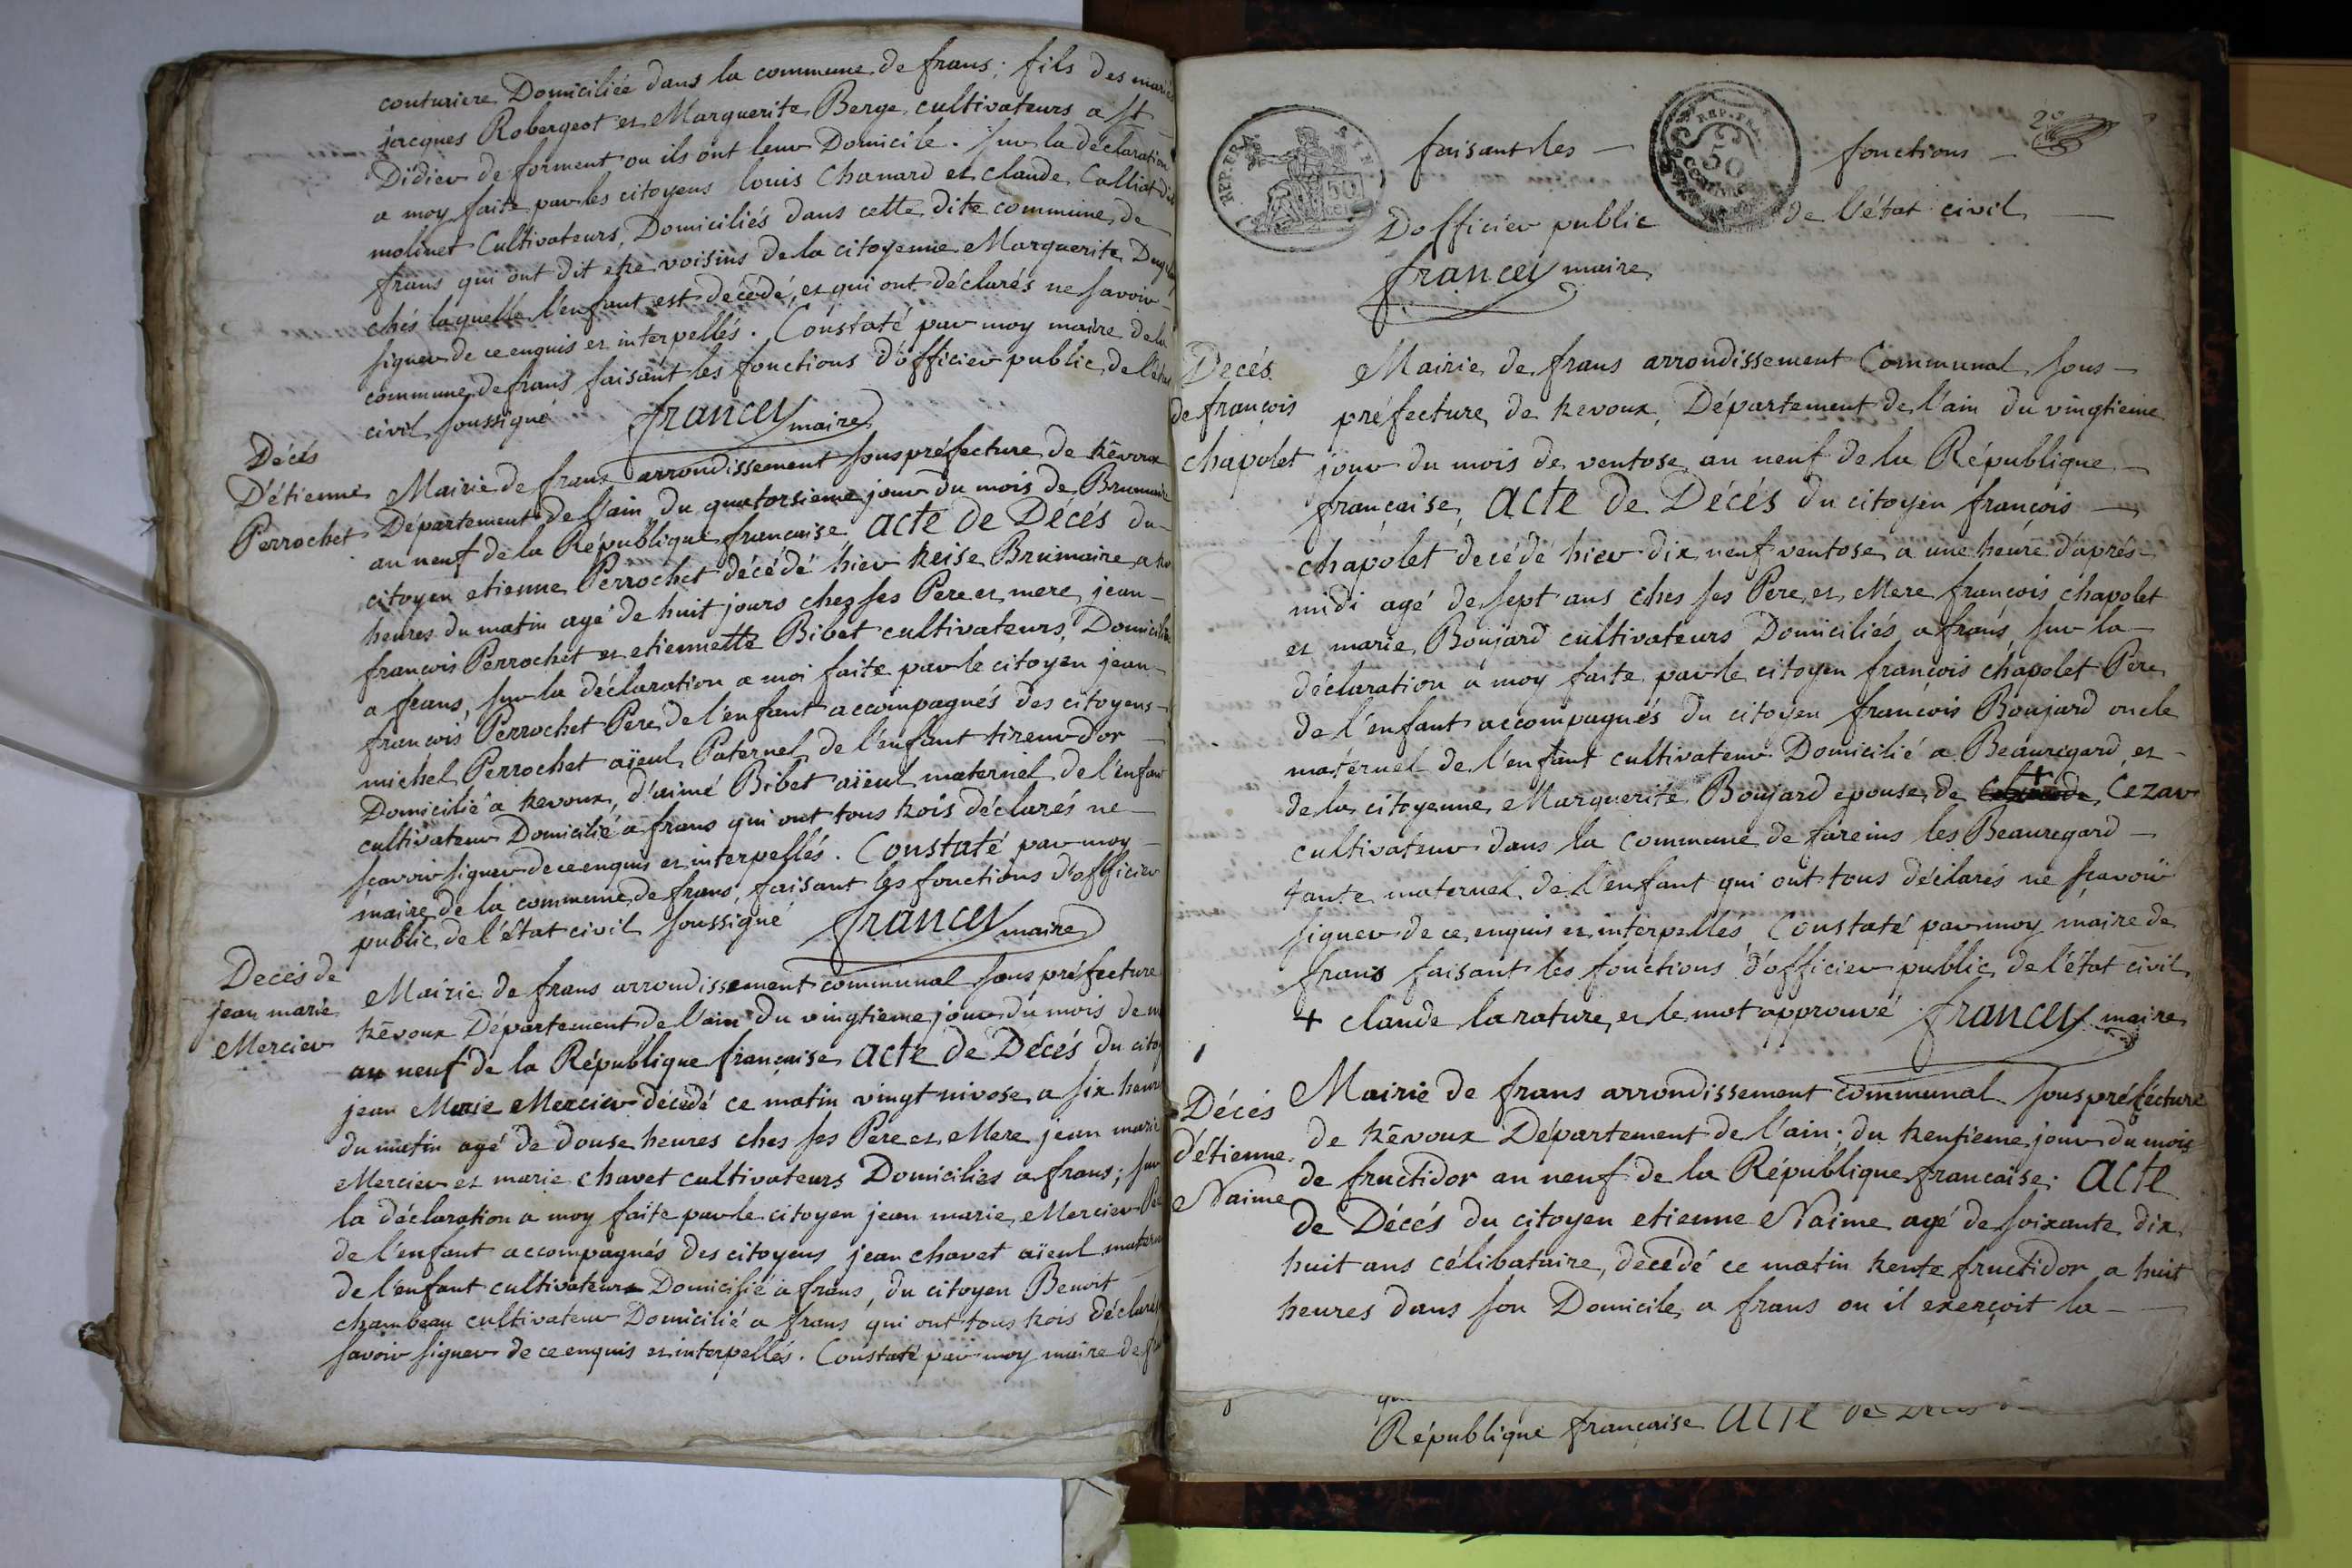 couturiere Domiciliée dans la commune de frans; fils des mariés
jacques Robergeot et Marguerite Berge cultivateurs a St
Didier de forment ou ils ont leur Domicile. sur la déclaration
a moy faite par les citoyens louis Chanard et claude Calliat dit
molinet Cultivateurs, Domiciliés dans cette dite commune de
frans qui ont dit etre voisins de la citoyenne Marguerite
chés laquelle l'enfant est decédé, et qui ont déclarés ne savoir
signer de ce enquis et interpellés. Constaté par moy maire de la
commune de frans faisant les fonctions d'officier public de l'état
civil soussigné francey maire
Décés
D'étienne
Perrochet
Mairie de frans arrondissement sous préfecture de trévoux
Département de l'ain du quatorsieme jour du mois de Brumaire
an neuf de la République française acte de Décés du
citoyen etienne Perrochet décédé hier treise Brumaire a
heures du matin agé de huit jours chez ses Pere et mere jean
francois Perrochet et etiennette Bibet cultivateurs, Domiciliés
a frans, sur la déclaration a moi faite par le citoyen jean
francois Perrochet Pere de l'enfant accompagnés des citoyens
michel Perrochet aïeul Paternel de l'enfant tireur d'or
Domicilié a trevoux, d'aimé Bibet aïeul maternel de l'enfant
cultivateur Domicilié a frans qui ont tous trois déclarés ne
scavoir signer de ce enquis et interpellés. Constaté par moy
maire de la commune de frans, faisant les fonctions d'officier
public de l'état civil soussigné francey maire
Decés de
jean marie
Mercier
Mairie de frans arrondissement communal sous préfecture
trévoux Département de l'ain du vingtieme jour du mois de
an neuf de la République française acte de Décés du citoy
jean Marie Mercier décédé ce matin vingt nivose a six heures
du matin agé de douse heures ches ses Pere et Mere jean marie
Mercier et marie chavet cultivateurs Domiciliés a frans; sur
la déclaration a moy faite par le citoyen jean marie Mercier Pe
de l'enfant accompagnés des citoyens jean chavet aïeul matern
de l'enfant cultivateur Domicilié a frans, du citoyen Benoit
chambeau cultivateur Domicilié a frans qui ont tous trois déclarés
savoir signer de ce enquis et interpellés. Constaté par moy maire de
REP. FRA. 50 cen
REP. FRA. 50
2e
faisant les fonctions
D'officier public de l'état civil
francey maire
Decés
de françois
chapolet
Mairie de frans arrondissement Communal sous
préfecture de trevoux, Département de l'ain du vingtieme
jour du mois de ventose an neuf de la République
française, acte de Décés du citoyen françois
chapolet decédé hier dix neuf ventose a une heure d'aprés
midi agé de sept ans ches ses Pere et Mere françois chapolet
et marie Boujard cultivateurs Domiciliés a frans sur la
déclaration a moy faite par le citoyen françois chapolet Pere
de l'enfant accompagnés du citoyen françois Boujard oncle
maternel de l'enfant cultivateur Domicilié a Beauregard et
de la citoyenne Marguerite Boujard epouse de + Cezar
cultivateur dans la commune de fareins les Beauregard
tante maternel de l'enfant qui ont tous déclarés ne scavoir
signer de ce enquis et interpellés Constaté par moy maire de
frans faisant les fonctions d'officier public de l'état civil
+ claude la rature et le mot approuvé francey maire
Décés
d'étienne
Naime
Mairie de frans arrondissement communal sous préfécture
de trévoux Département de l'ain; du trentieme jour du mois
de fructidor an neuf de la République française. acte
de Décés du citoyen etienne Naime agé de soixante dix
huit ans célibataire, decédé ce matin trente fructidor a huit
heures dans son Domicile a frans ou il exerçoit la
République française acte de